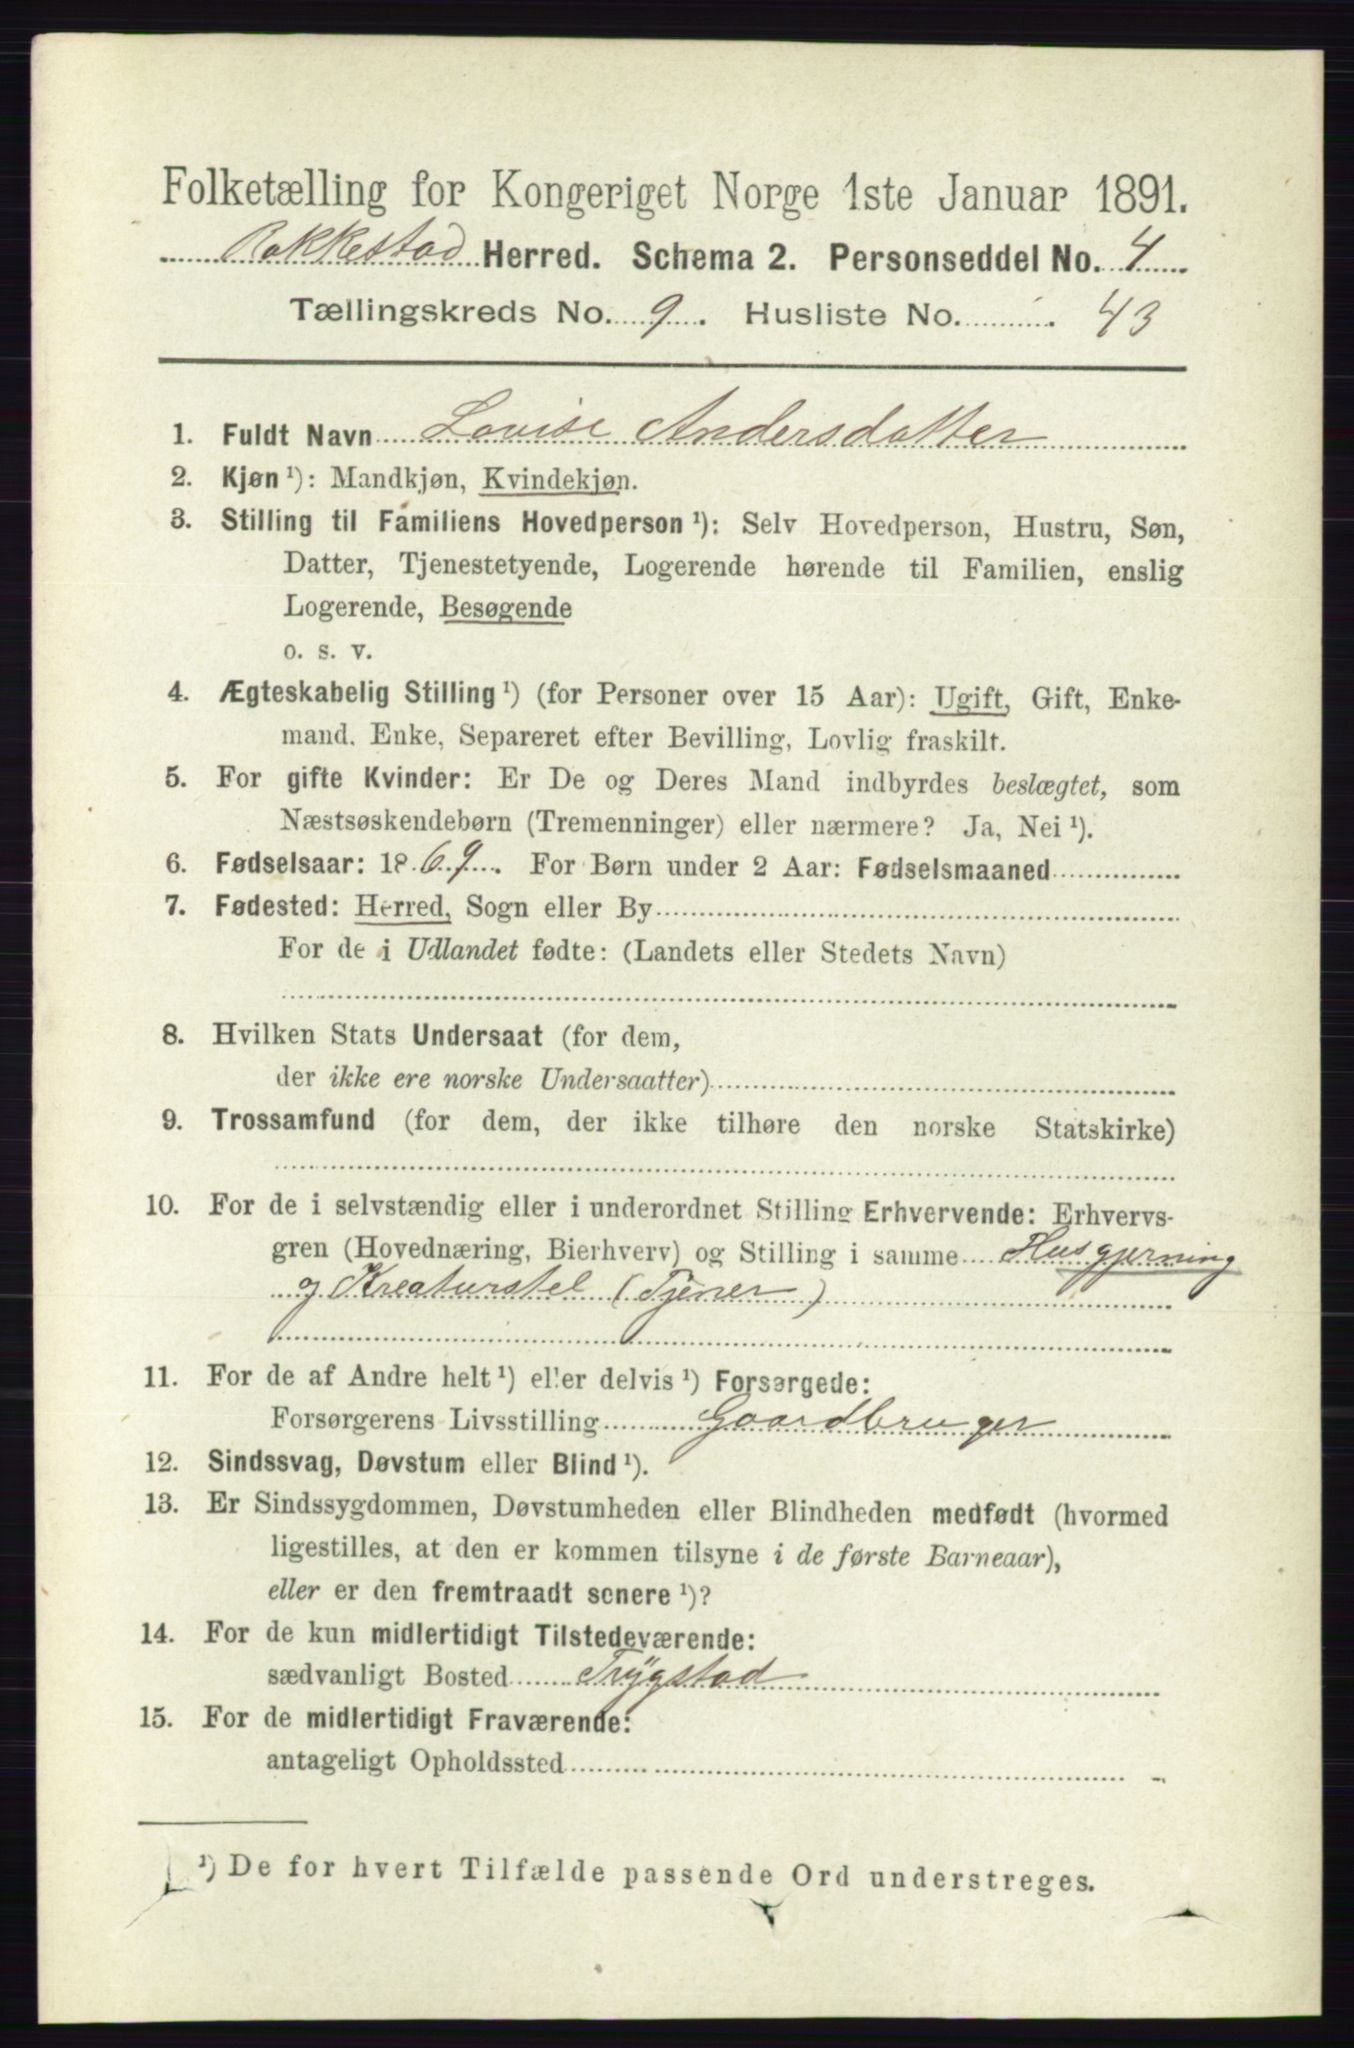 Folketælling for Kongeriget Norge 1ste Januar 1891.
Rakkestad Herred. Schema 2. Personseddel No. 4
Tællingskreds No. 9. Husliste No. 43
1. Fuldt Navn Lovise Andersdatter
2. Kjøn ¹): Mandkjøn, Kvindekjøn.
3. Stilling til Familiens Hovedperson ¹): Selv Hovedperson, Hustru, Søn,
Datter, Tjenestetyende, Logerende hørende til Familien, enslig
Logerende, Besøgende
o. s. v.
4. Ægteskabelig Stilling ¹) (for Personer over 15 Aar): Ugift, Gift, Enke-
mand. Enke, Separeret efter Bevilling, Lovlig fraskilt.
5. For gifte Kvinder: Er De og Deres Mand indbyrdes beslægtet, som
Næstsøskendebørn (Tremenninger) eller nærmere? Ja, Nei ¹).
6. Fødselsaar: 1869. For Børn under 2 Aar: Fødselsmaaned
7. Fødested: Herred, Sogn eller By
For de i Udlandet fødte: (Landets eller Stedets Navn)
8. Hvilken Stats Undersaat (for dem,
der ikke ere norske Undersaatter)
9. Trossamfund (for dem, der ikke tilhøre den norske Statskirke)
10. For de i selvstændig eller i underordnet Stilling Erhvervende: Erhvervs-
gren (Hovednæring, Bierhverv) og Stilling i samme Husgjerning
og Kreaturstel (Tjener)
11. For de af Andre helt ¹) eller delvis ¹) Forsørgede:
Forsørgerens Livsstilling Gaardbruger
12. Sindssvag, Døvstum eller Blind ¹).
13. Er Sindssygdommen, Døvstumheden eller Blindheden medfødt (hvormed
ligestilles, at den er kommen tilsyne i de første Barneaar),
eller er den fremtraadt senere ¹)?
14. For de kun midlertidigt Tilstedeværende:
sædvanligt Bosted Trygstad
15. For de midlertidigt Fraværende:
antageligt Opholdssted
¹) De for hvert Tilfælde passende Ord understreges.